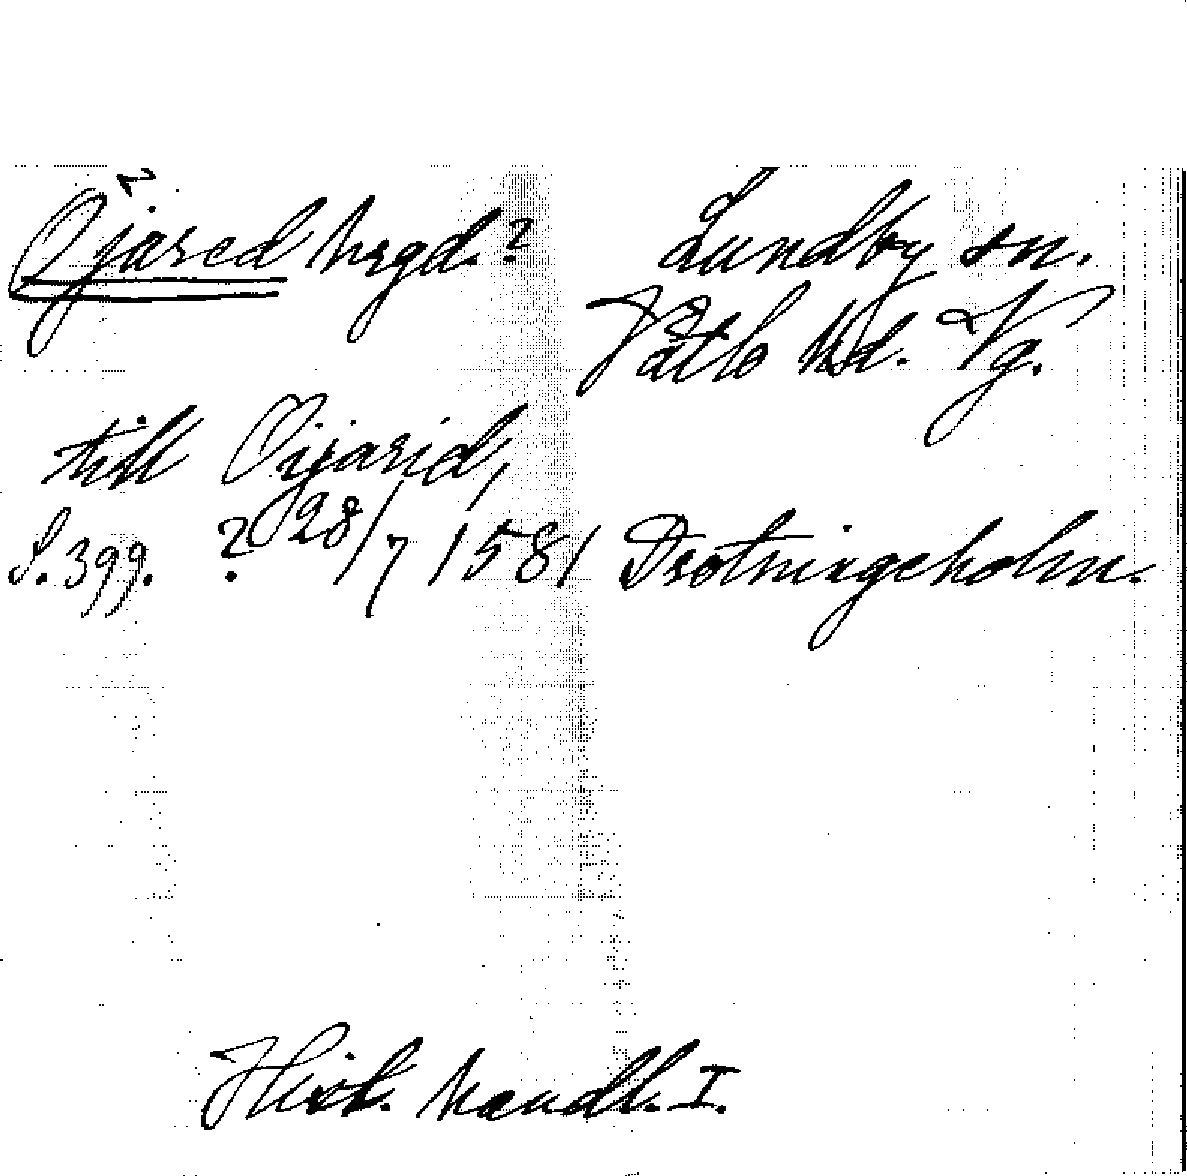 Öjared hrgd.? Lundby sn.
Vättle hd. Vg.
till Öijarid,
S. 399. ? 28/7 1581 Drotningeholm.
Hist. handl. I.